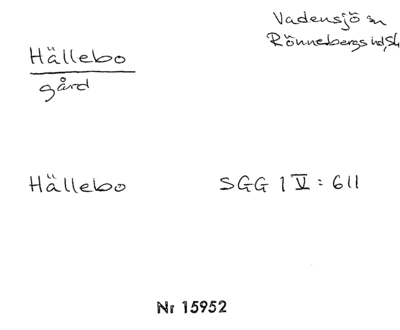 Vadensjö sn
Rönnebergs hd, Sk
Hällebo
gård
Hällebo SGG 1 V : 611
Nr 15952